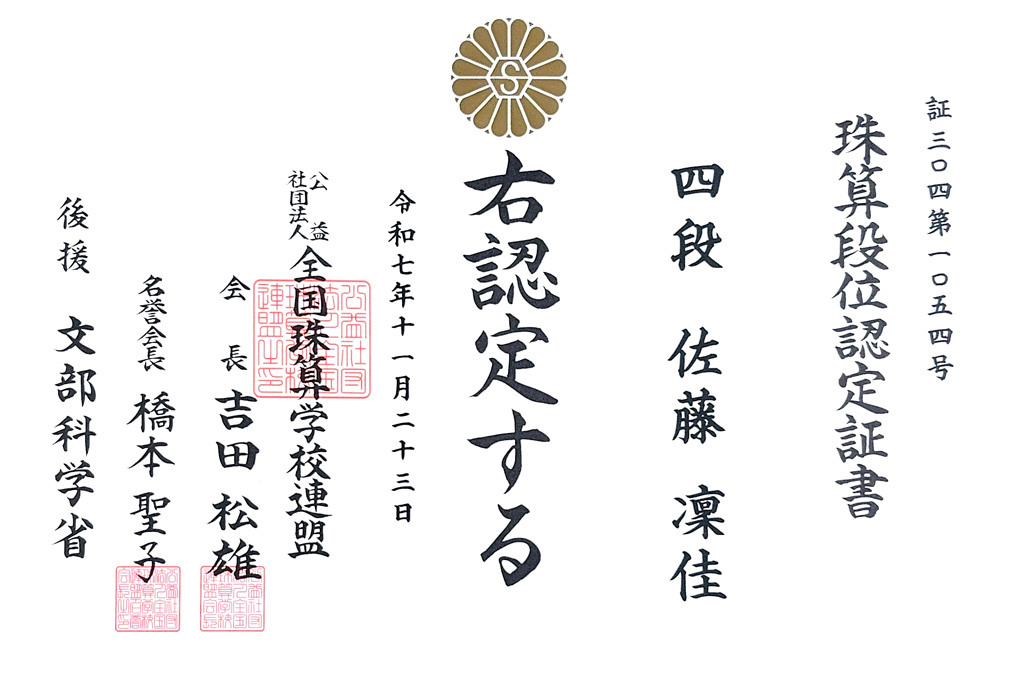 証三〇四第一〇五四号
珠算段位認定証書
四段 佐藤 凜佳
右認定する
令和七年十一月二十三日
公益社団法人 全国珠算学校連盟
会長 吉田松雄
名誉会長 橋本聖子
後援 文部科学省
S